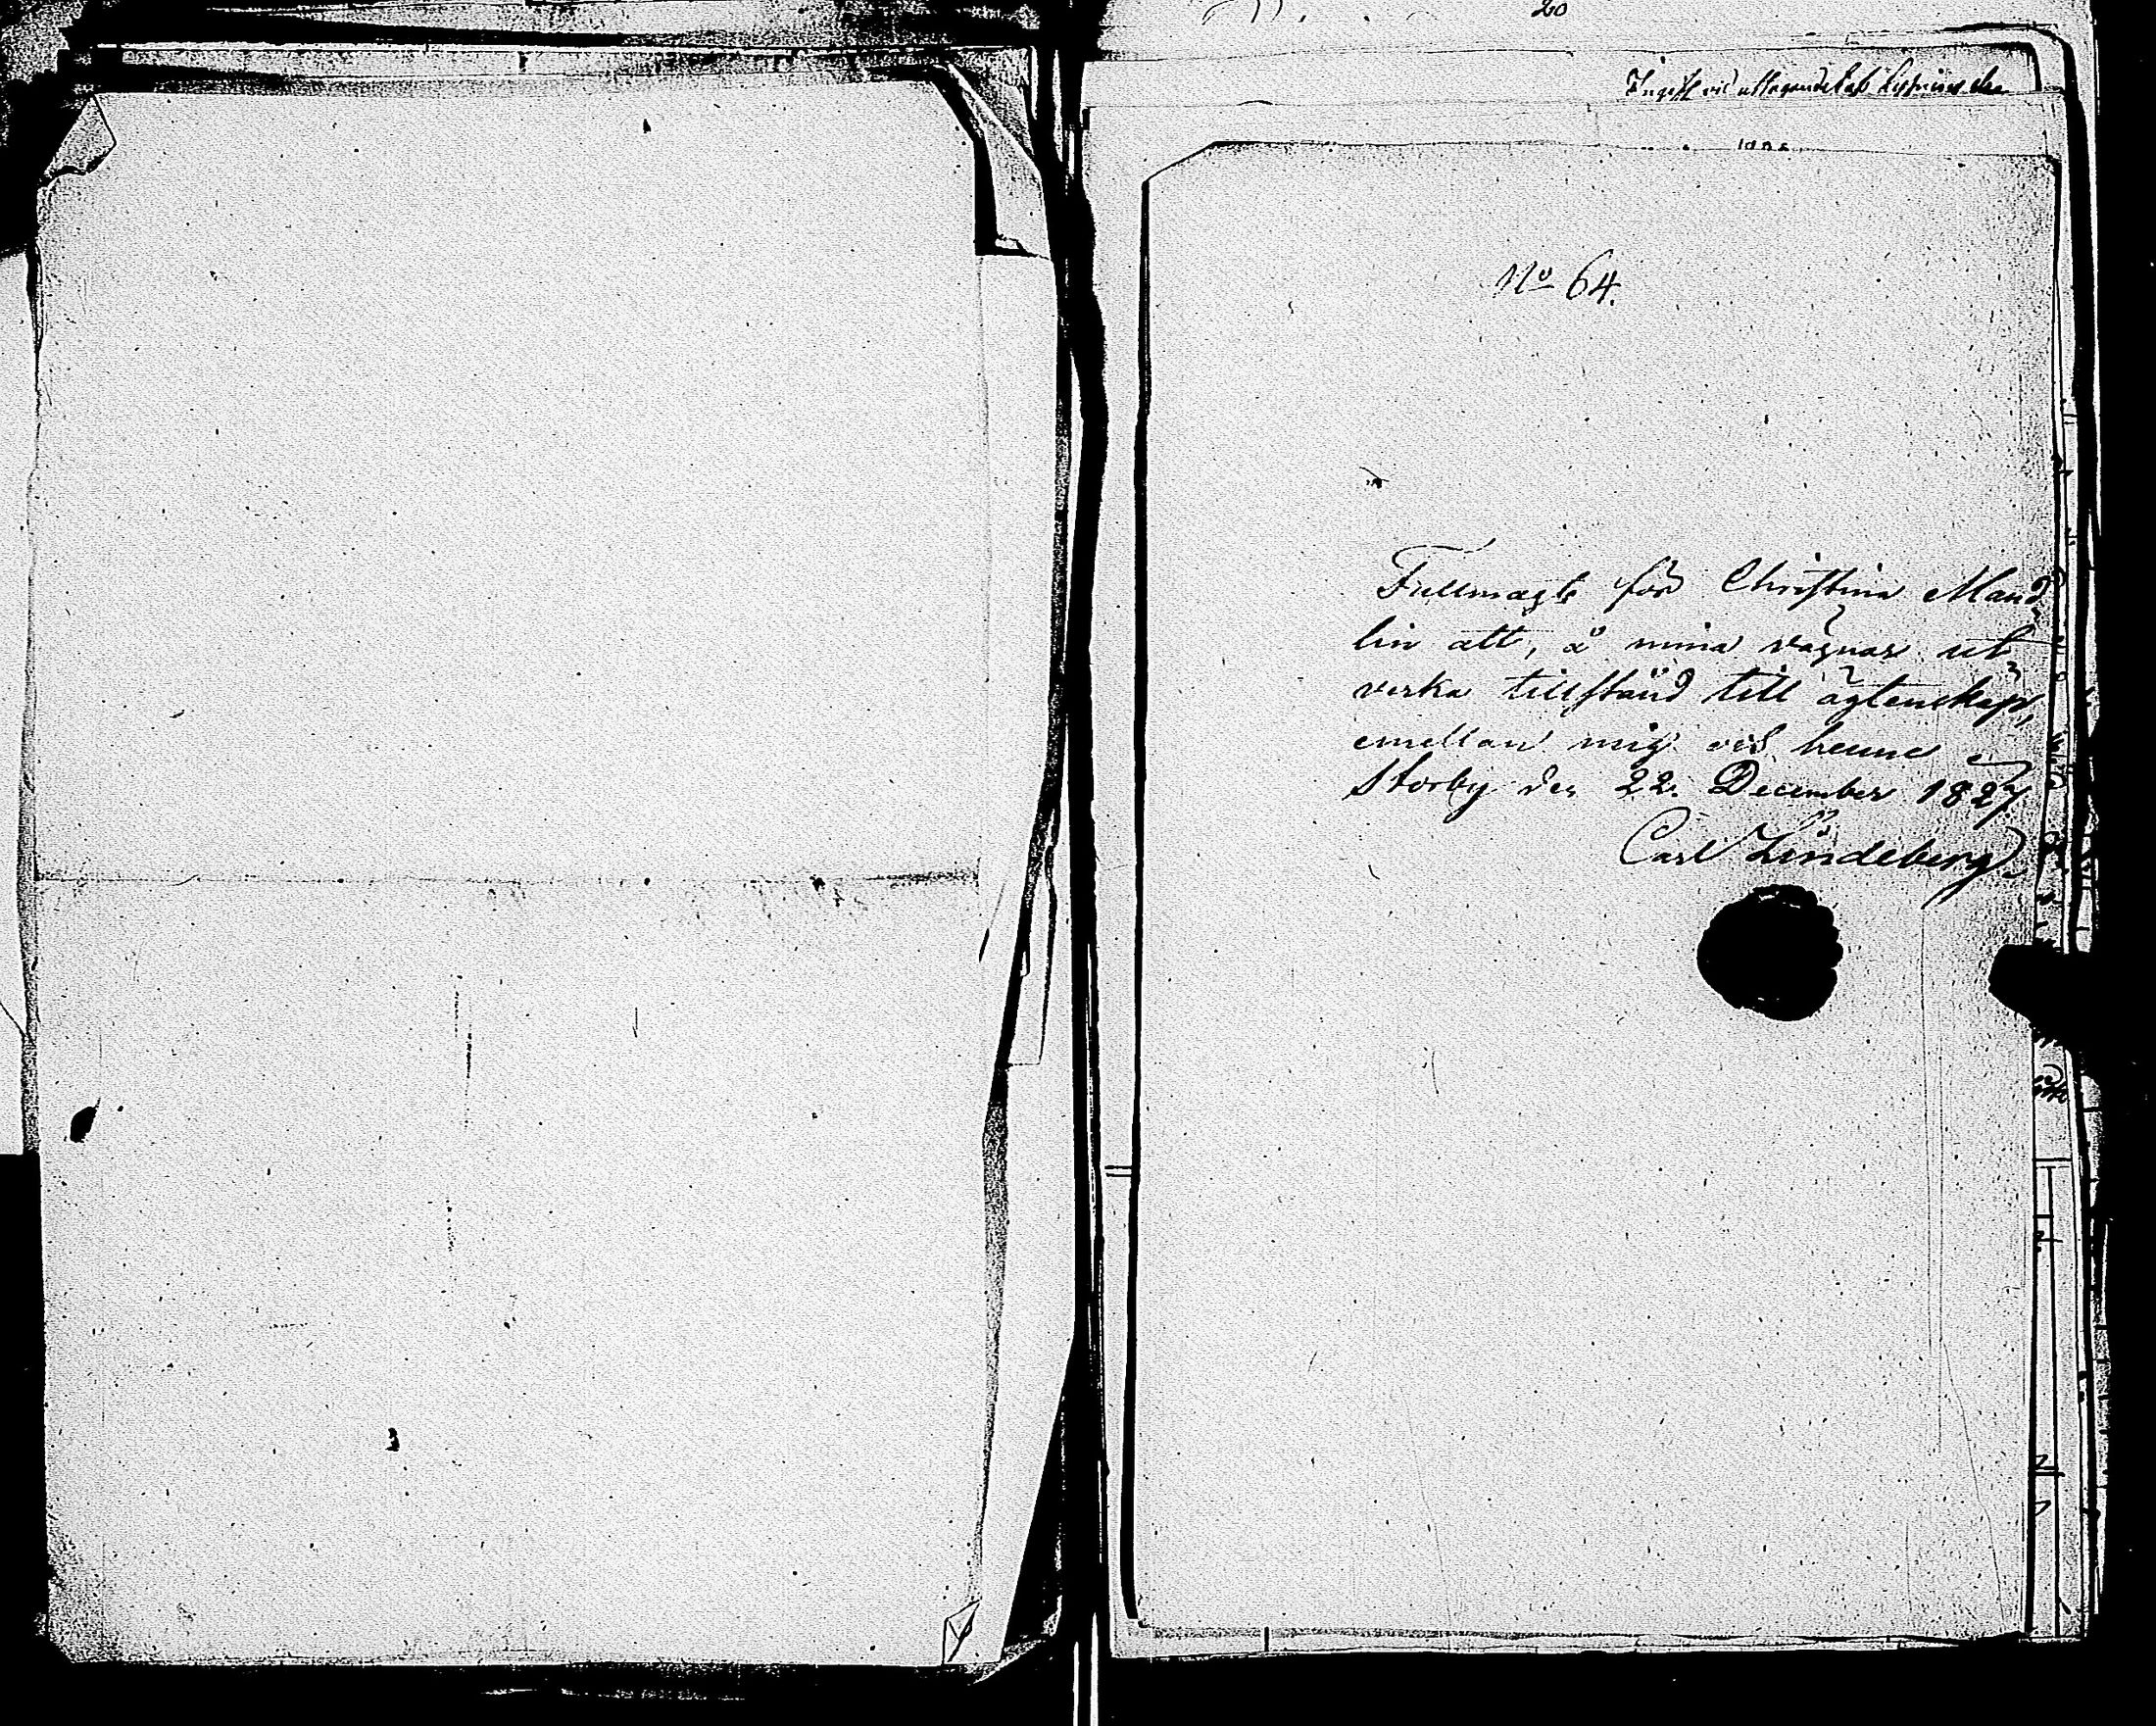 20
No 64.
Fullmagt för Christina Mand
lin att, å mina vägnar ut
verka tillstånd till ägtenskap,
emellan mig och henne
Storby den 22. December 1827
Carl Lindeberg